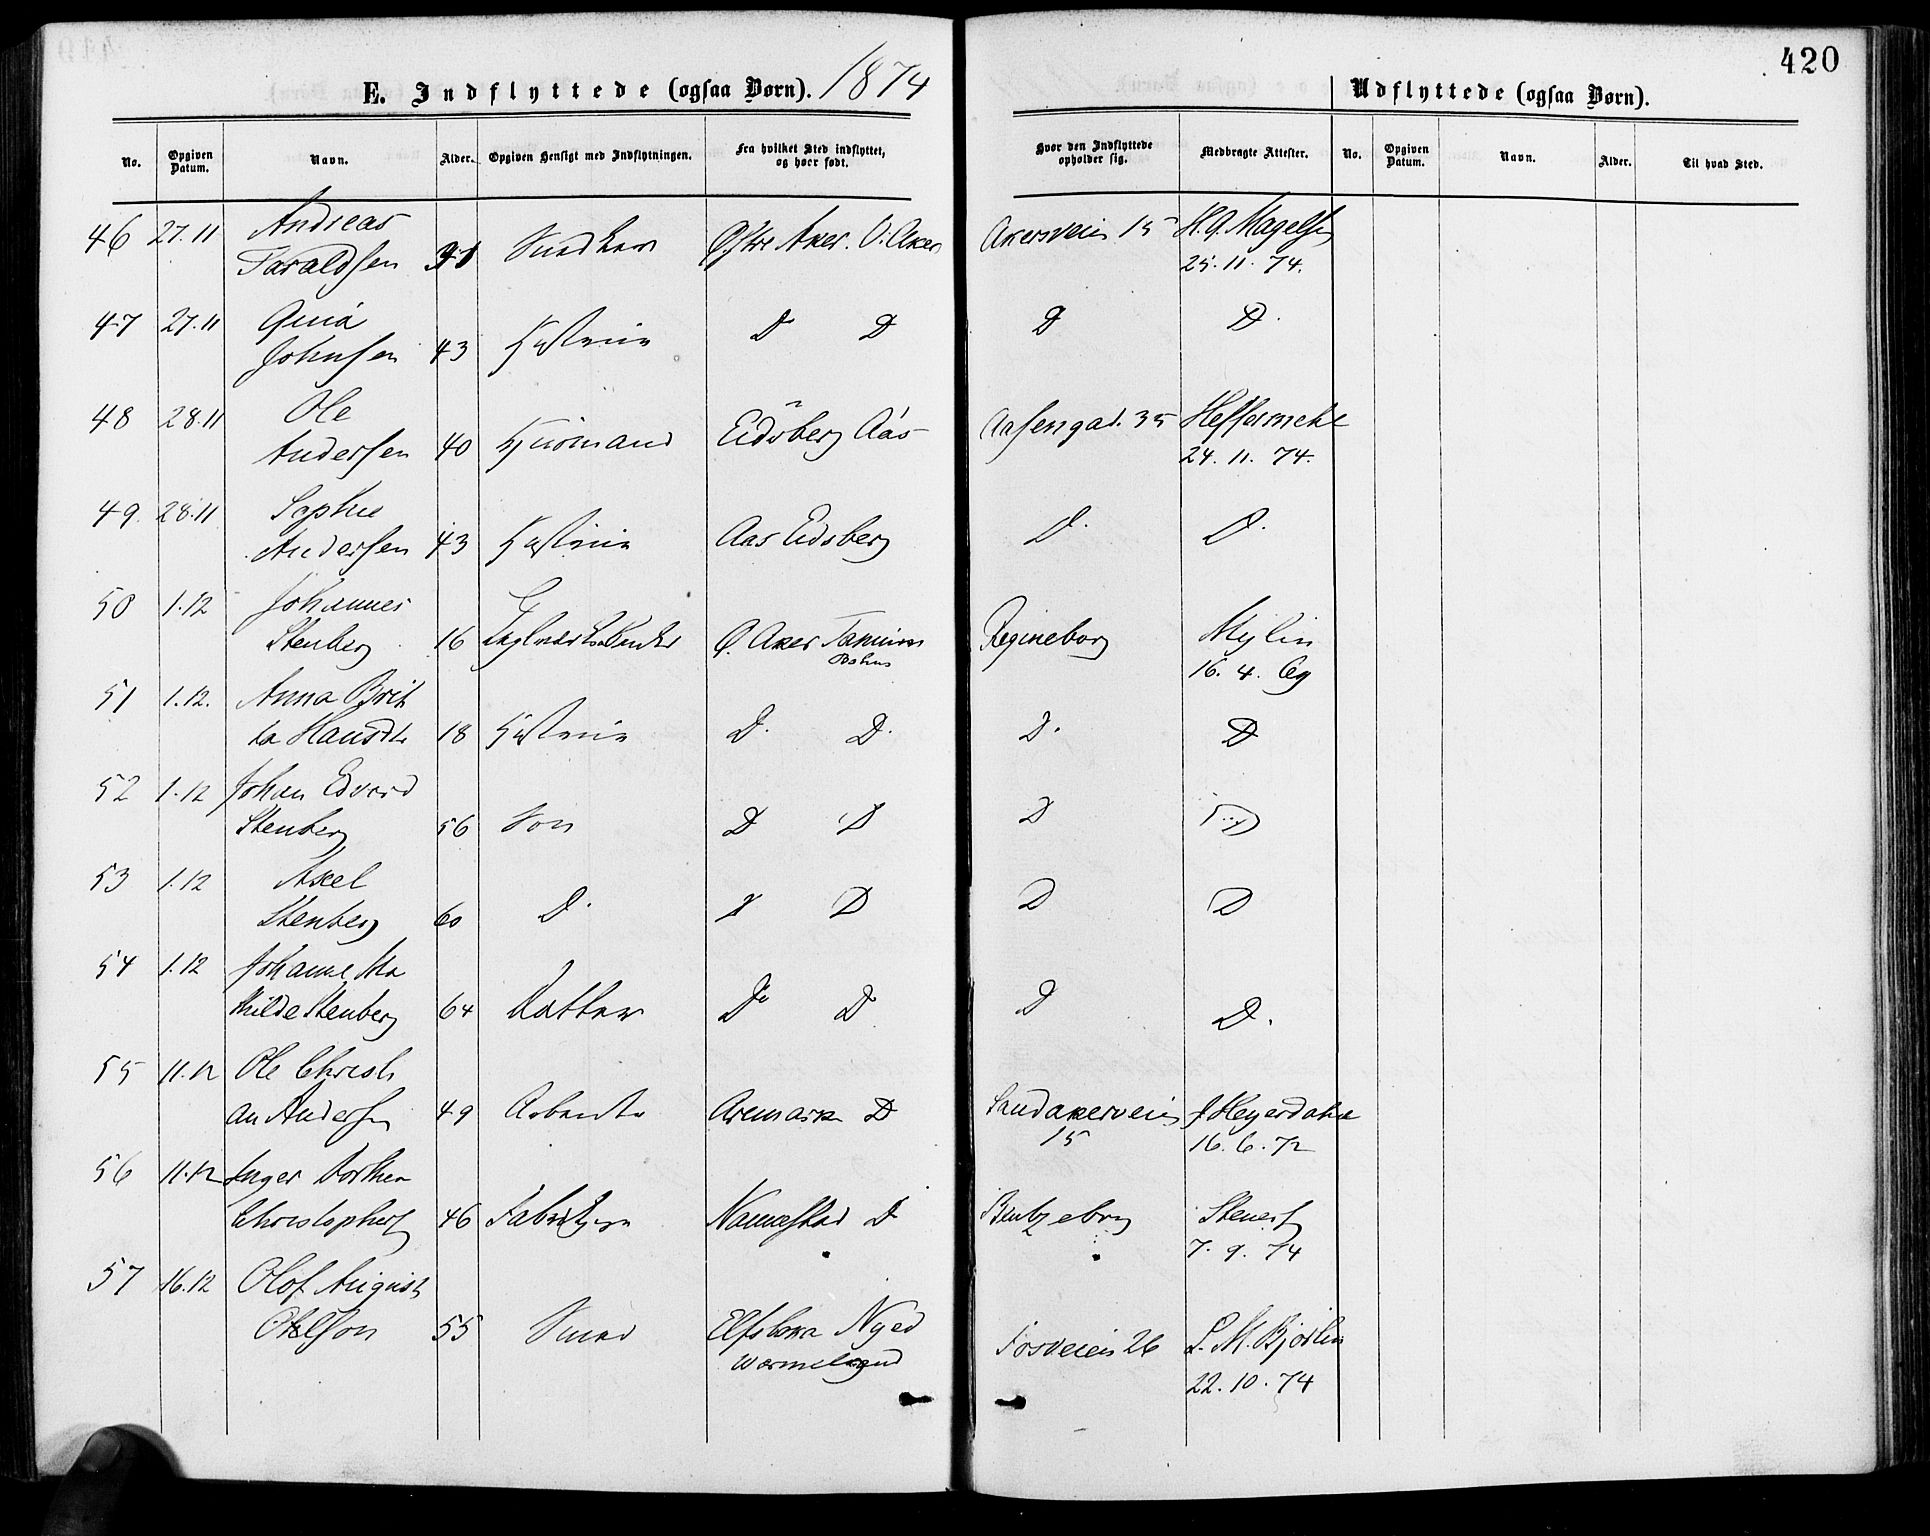 420
E. Indflyttede (ogsaa Børn). 1874
Udflyttede (ogsaa Børn).
No. Opgiven Datum. Navn. Alder. Opgiven Hensigt med Indflytningen. Fra hvilket Sted indflyttet, og hvor født. Hvor den Indflyttede opholder sig. Medbragte Attester. No. Opgiven Datum. Navn. Alder. Til hvad Sted.
46 27.11 Andreas Akersveien 15 H. G. Magelsen
Taraldsen Snedker Østre Aker. Ø. Aker 25.11.74.
47 27.11 D D D D.
Johnsen 43 Hustru
48 28.11 Ole Aasengad. 35
Andersen 40 Eidsberg Aas 24.11.74.
49 28.11 Sophie D. D.
Andersen 43 Hustru Aas Eidsberg
50 1.12 Johannes
Stenberg 16 Ø. Aker Regineborg Mylin
Bohus 16.4.
51 1.12. Anna Brit
ta Hansdtr 18 Hustru D. D. D. D
52 1.12 Johan Edvard
Stenberg 56 Søn D D D D
53 1.12 Axel
Stenberg 60 D. D D D D
54 1.12 Johanne Ma
thilde Stenberg 64 Datter D D D D.
55 11.12 Ole Christi
an Andersen 49 Arbeider Aremark D Sandakerveien J Heyerdahl
15 16.6.72
56 11.12 Inger Dorthea
Christophers 46 Nannestad D Bentzebro Stenersen
7.9.74
57 16.12 Olof August
Olsson 55 Smed Nyed Fosveien 26 L. M. Bjørlin
Wermeland 22.10.74